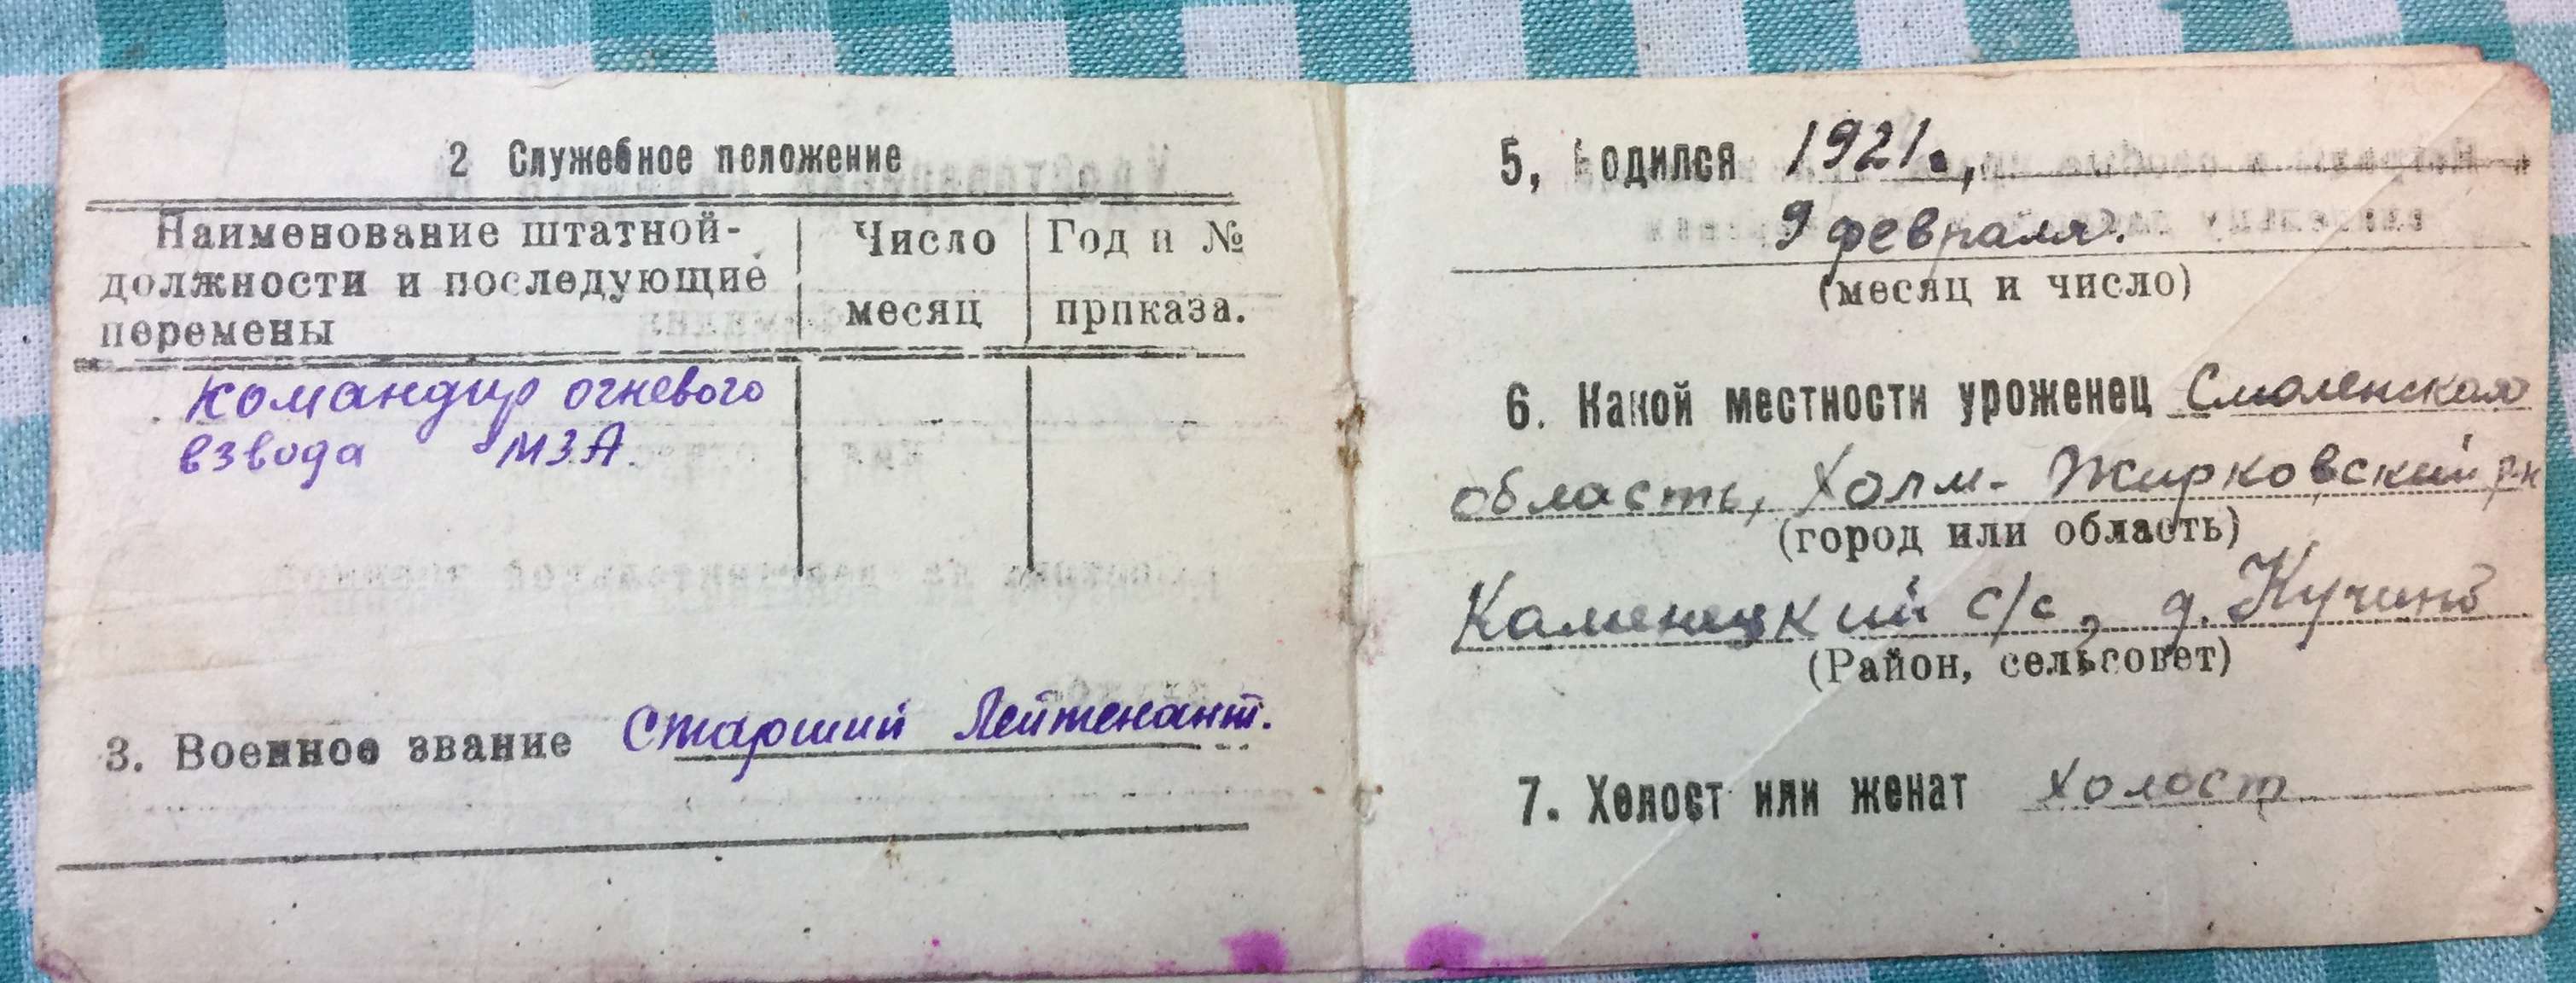 2 Служебное положение
Наименование штатной-
должности и последующие
перемены
Число
месяц
Год и №
приказа.
командир огневого
взвода МЗА.
3. Военное звание Старший Лейтенант.
5, Родился 1921.,
9 февраля.
(месяц и число)
6. Какой местности уроженец Смоленская
область, Холм-Жирковский р-н
(город или область)
Каменецкий с/с, д. Кучино
(Район, сельсовет)
7. Холост или женат холост